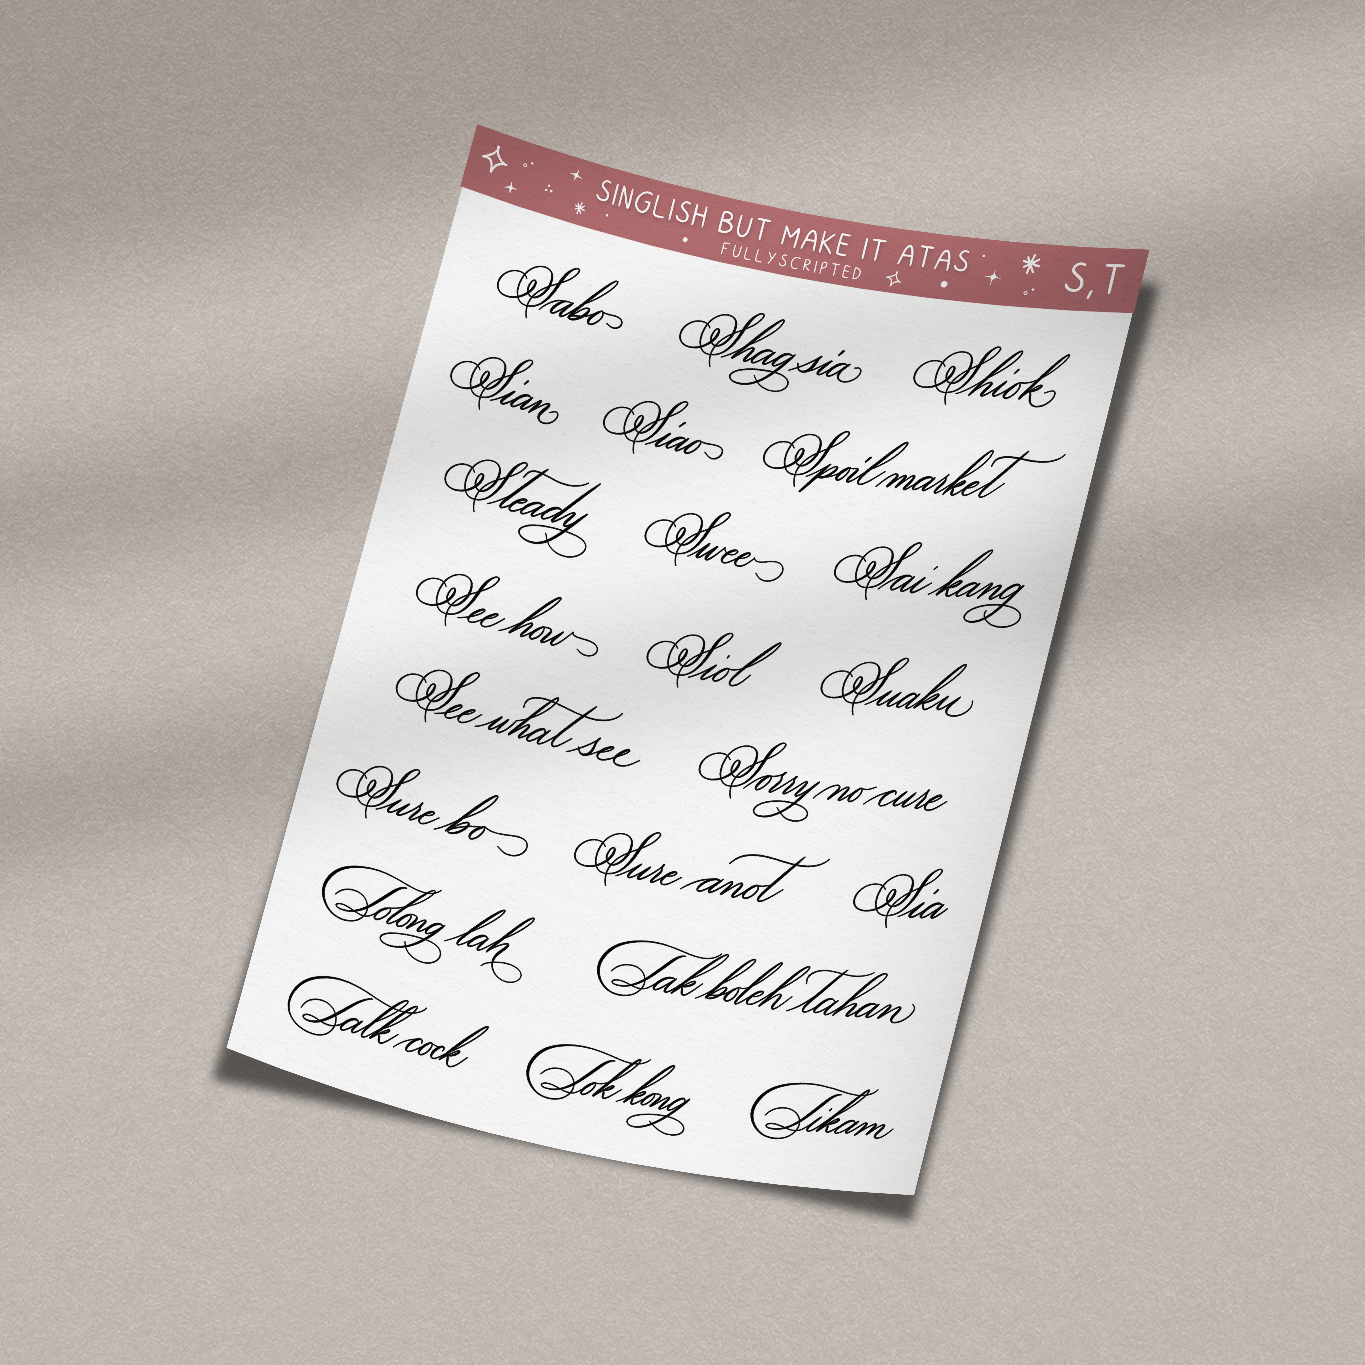 SINGLISH BUT MAKE IT ATAS S, T
FULLYSCRIPTED
Sabo Shag sia Shiok
Sian Siao Spoil market
Steady Swee Sai kang
See how Siol Suaku
See what see Sorry no cure
Sure bo Sure anot Sia
Tolong lah Tak boleh tahan
Talk cock Tok kong Tikam